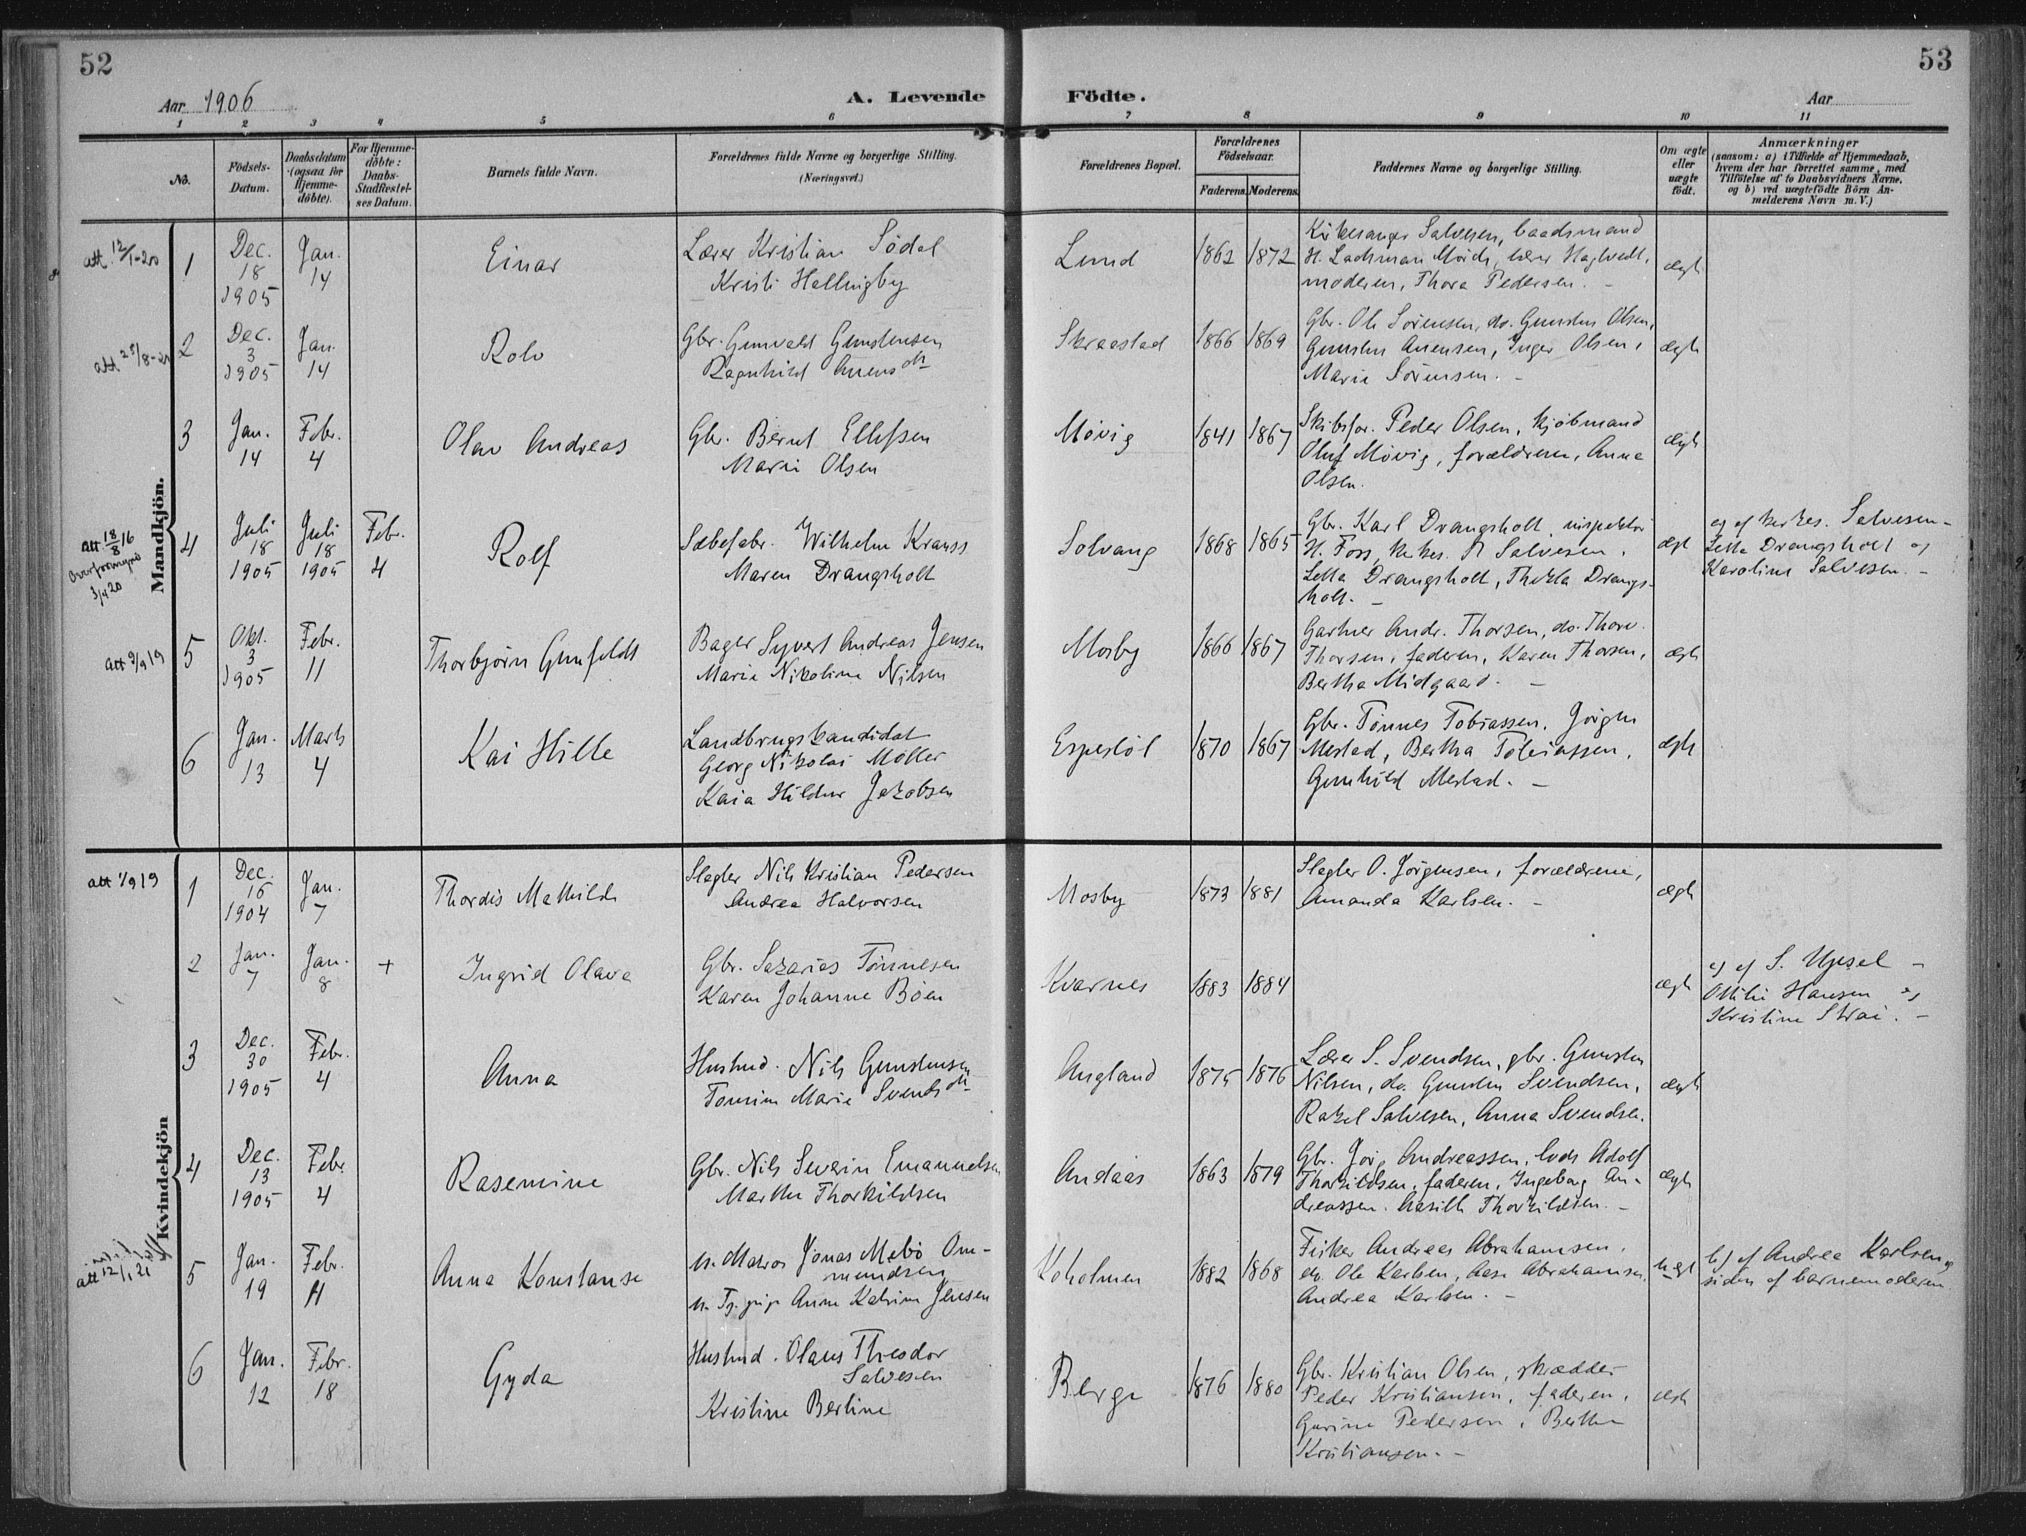 52
53
Aar 1906
A. Levende
Födte.
Aar
1 2 3 4 5 6 7 8 9 10 11
No.
Födsels-Datum.
Daabsdatum (ogsaa for Hjemme-döbte).
For Hjemme-döbte: Daabs-Stadfæstel-ses Datum.
Barnets fulde Navn.
Forældrenes fulde Navne og borgerlige Stilling.
(Næringsvei.)
Forældrenes Bopæl.
Forældrenes Födselsaar.
Faderens. Moderens.
Faddernes Navne og borgerlige Stilling.
Om ægte eller uægte födt.
Anmærkninger
(saasom: a) i Tilfælde af Hjemmedaab, hvem der har forrettet samme, med Tilföielse af to Daabsvidners Navne, og b) ved uægtefödte Börn Anmelderens Navn m. V.)
Mandkjön.
att 12/1-20
1
Dec. 18 1905
Jan. 14
Einar
Lærer Kristian Södal
Kristi Hellingby
Lund
1862 1872
Kirkesanger Salvesen, baadsmand
H. Ladsman Moide, lærer Hagtvedt,
moderen, Thora Pedersen. -
ægte
att 25/8-20
2
Dec. 3 1905
Jan. 14
Rolv
Gbr. Gunvald Gundersen
Ragnhild Anensdt
Skraastad
1866 1869
Gbr. Ole Sørensen, do. Gunstein Olsen,
Gunsten Anensen, Inger Olsen,
Marie Sørensen. -
ægte
3
Jan. 14
Febr. 4
Olav Andreas
Gbr. Bernt Ellefsen
Marie Olsen
Møvig
1841 1867
Skibsfør. Peder Olsen, kjøbmand
Oluf Møvig, forældrene, Anna
Olsen.
ægte
att 18/8 16
3/4 20
4
Juli 18 1905
Juli 18 1905
Febr. 4
Rolf
Sæbefabr. Wilhelm Krauss
Maren Drangsholt
Solvang
1868 1865
Gbr. Karl Drangsholt, inspektør
H. Foss, kirkes. Salvesen,
Letta Drangsholt, Thekla Drangs-
holt. -
ægte
a) af kirkes. Salvesen -
Letta Drangsholt og
Karoline Salvesen. -
att 9/9 19
5
Okt. 3 1905
Febr. 11
Thorbjørn Gunfeldt
Bager Syvert Andreas Jensen
Marie Nikoline Nilsen
Mosby
1866 1867
Gartner Andr. Thorsen, do. Thorv.
Thorsen, faderen, Karen Thorsen,
Bertha Midgaard. -
ægte
6
Jan. 13
Marts 4
Kai Hille
Landbrugskandidat
Georg Nikolai Møller
Kaia Hildur Jakobsen
Espestøl
1870 1867
Gbr. Tønnes Tobiassen, Jørgen
Mestad, Bertha Tobiassen,
Gunhild Mestad. -
ægte
Kvindekjön
att 1/9 19
1
Dec. 16 1904
Jan. 7
Thordis Mathilde
Slagter Nils Kristian Pedersen
Andrea Halvorsen
Mosby
1873 1881
Slagter O. Jørgensen, forældrene,
Amanda Karlsen. -
ægte
2
Jan. 7
Jan. 8
+
Ingrid Olava
Gbr. Sakarias Tønnesen
Karen Johanne Bøen
Kvarnes
1883 1884
ægte
a) af S. Upsal -
Ottilie Hansen og
Kristine Strai. -
3
Dec. 30 1905
Febr. 4
Anna
Husmd. Nils Gundersen
Tomine Marie Svendsdt
Augland
1875 1876
Lærer S. Svendsen, gbr. Gunsten
Nilsen, do. Gunsten Svendsen,
Rakel Salvesen, Anna Svendsen.
ægte
4
Dec. 13 1905
Febr. 4
Rasemine
Gbr. Nils Severin Emanuelsen
Marthe Thorkildsen
Andaas
1863 1879
Gbr. Jørg. Andreassen, lods Adolf
Thorkildsen, faderen, Ingeborg An-
dreassen. Aasille Thorkildsen. -
ægte
att 12/1 21
5
Jan. 19
Febr. 11
Anna Konstanse
u. Matros Jonas Mebø Om-
mundsen
u. Tj. pige Anne Katrine Jensen
Koholmen
1882 1868
Fisker Andreas Abrahamsen,
do. Ole Karlsen, Aase Abrahamsen,
Andrea Karlsen. -
uægt
b) af Andrea Karlsen og
siden af barnemoderen
6
Jan. 12
Febr. 18
Gyda
Husmd. Olaus Theodor
Salvesen
Kristine Bertine
Berge
1876 1880
Gbr. Kristian Olsen, skrædder
Peder Kristiansen, faderen,
Gurine Pedersen, Berthe
Kristiansen. -
ægte